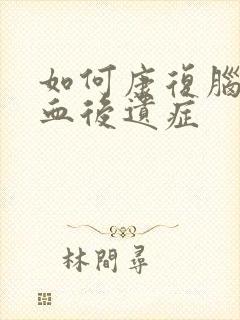 如何康復腦
血後遺症
林間尋